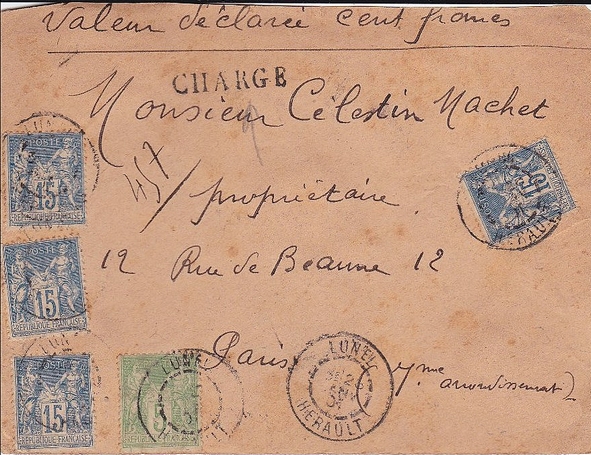 Valeur déclarée cent francs
CHARGÉ
Monsieur Celestin Machet
457
propriétaire
12 Rue de Beaune 12
Paris 7me arrondissement
POSTE
15
REPUBLIQUE FRANÇAISE
15
REPUBLIQUE FRANÇAISE
POSTE
15
REPUBLIQUE FRANÇAISE
5
15
LUNEL
HERAULT
LUNEL
HERAULT